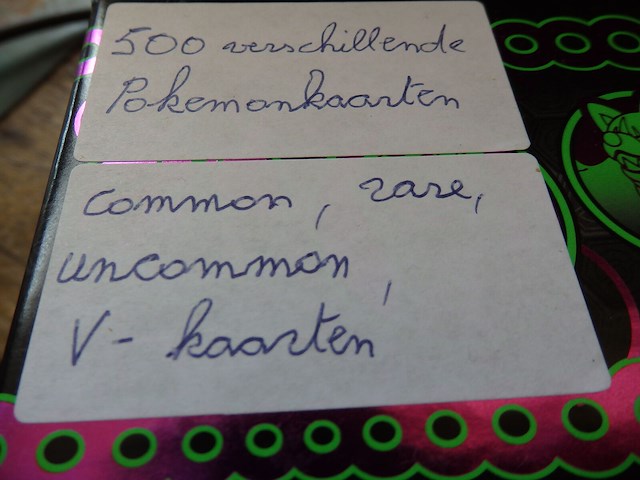 500 verschillende
Pokemonkaarten
common, rare,
uncommon,
V- kaarten